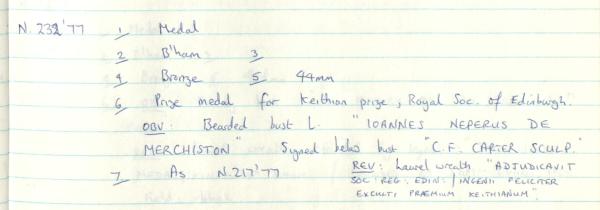 N. 232'77 1 Medal
2 B'ham 3
4 Bronze 5 44mm
6 Prize medal for Keithian prize, Royal Soc. of Edinburgh.
OBV: Bearded bust L. "IOANNES NEPERUS DE
MERCHISTON" Signed below bust "C.F. CARTER SCULP."
7 As N.217'77
REV: Laurel wreath "ADJUDICAVIT
SOC: REG: EDIN: / INGENII FELICITER
EXCULTI PRÆMIUM KEITHIANUM"